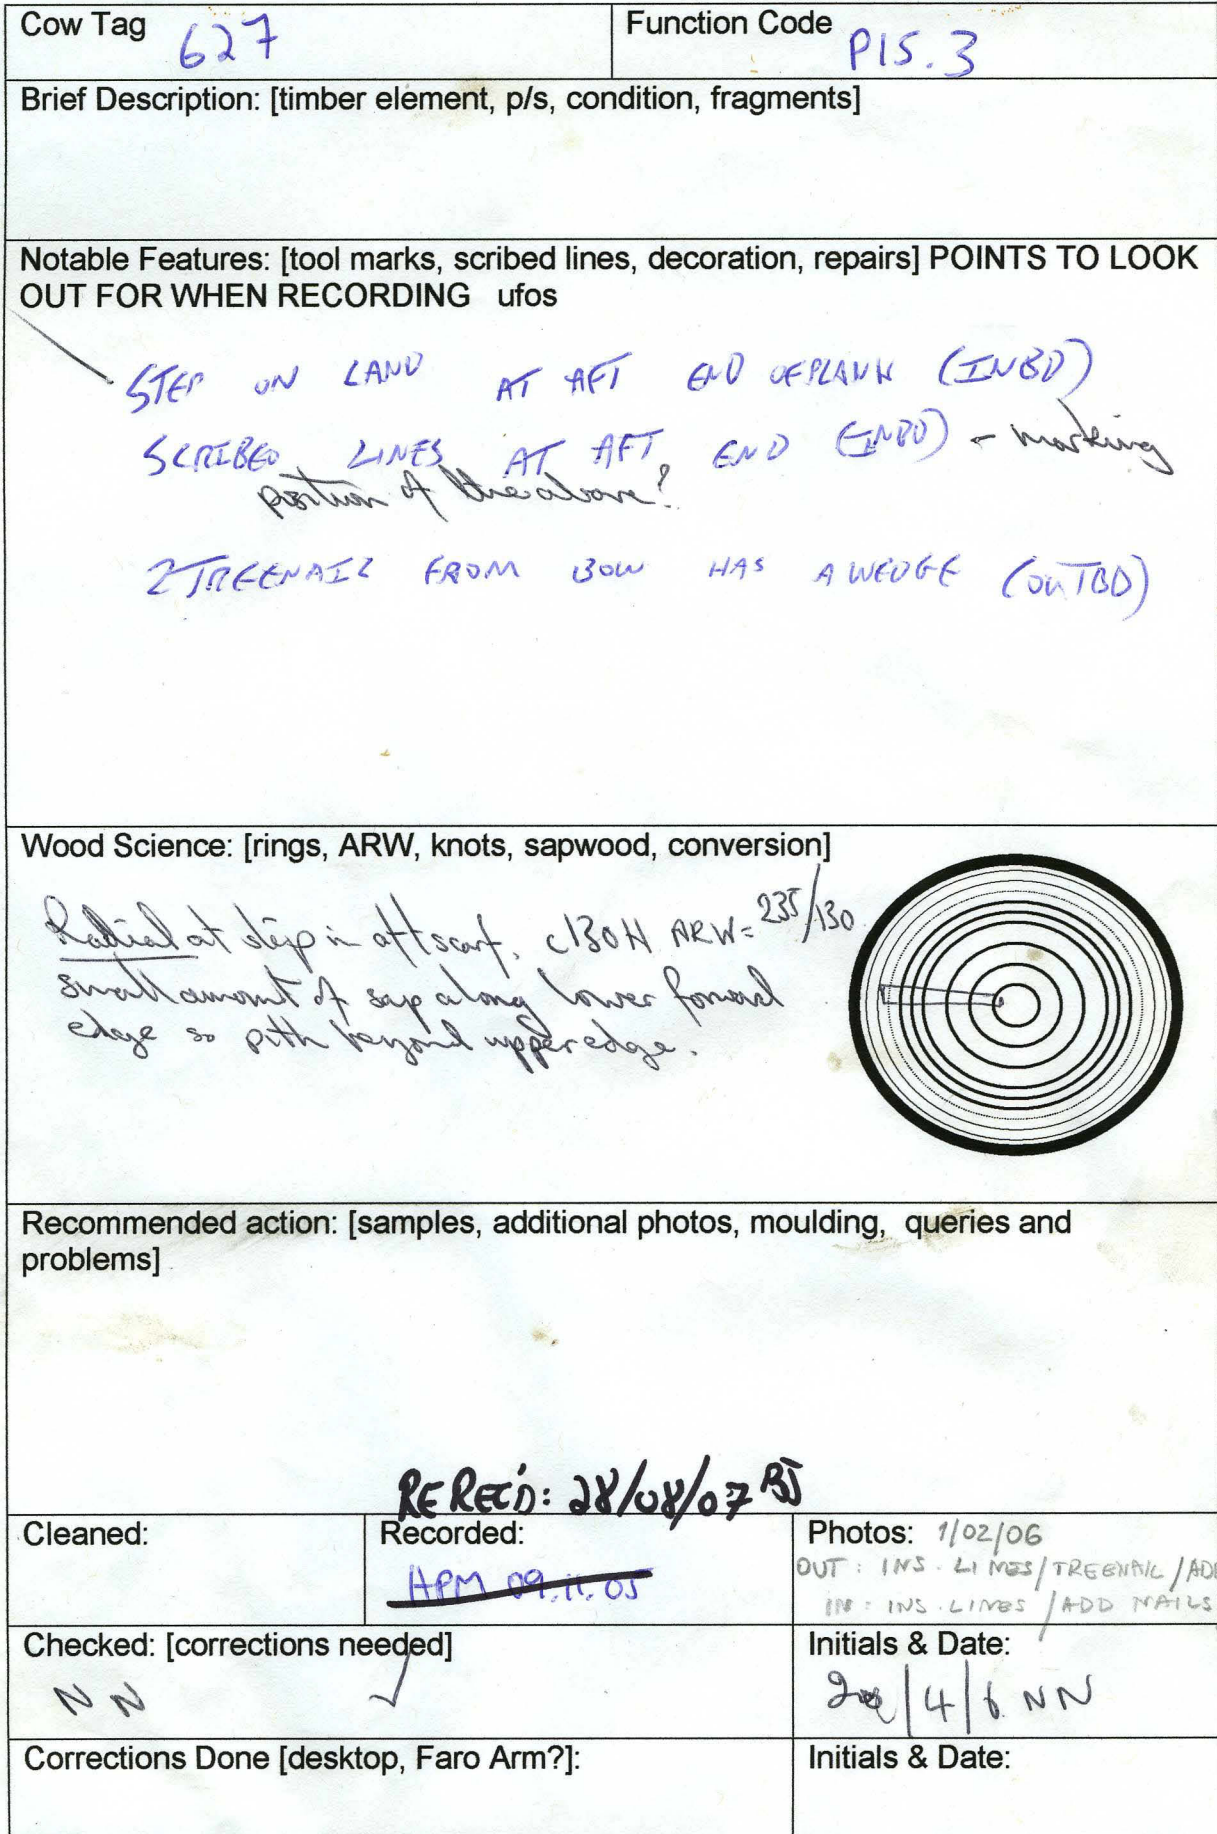 Cow Tag 627
Function Code P15.3
Brief Description: [timber element, p/s, condition, fragments]
Notable Features: [tool marks, scribed lines, decoration, repairs] POINTS TO LOOK
OUT FOR WHEN RECORDING ufos
STEP ON LAND AT AFT END OF PLANK (INBD)
SCRIBED LINES AT AFT END (INBD) - marking
position of the above?
2 TREENAIL FROM BOW HAS A WEDGE (OUTBD)
Wood Science: [rings, ARW, knots, sapwood, conversion]
Radial at step in aft scarf. c130H ARW= 235/130
small amount of sap along lower forward
edge so pith beyond upper edge.
Recommended action: [samples, additional photos, moulding, queries and
problems]
RE REC'D: 28/08/07 BJ
Cleaned:
Recorded:
HPM 09.11.05
Photos: 1/02/06
OUT: INS. LINES/TREENAIL/ADD
IN: INS. LINES/ADD NAILS
Checked: [corrections needed]
NN ✓
Initials & Date:
/4/6 NN
Corrections Done [desktop, Faro Arm?]:
Initials & Date: